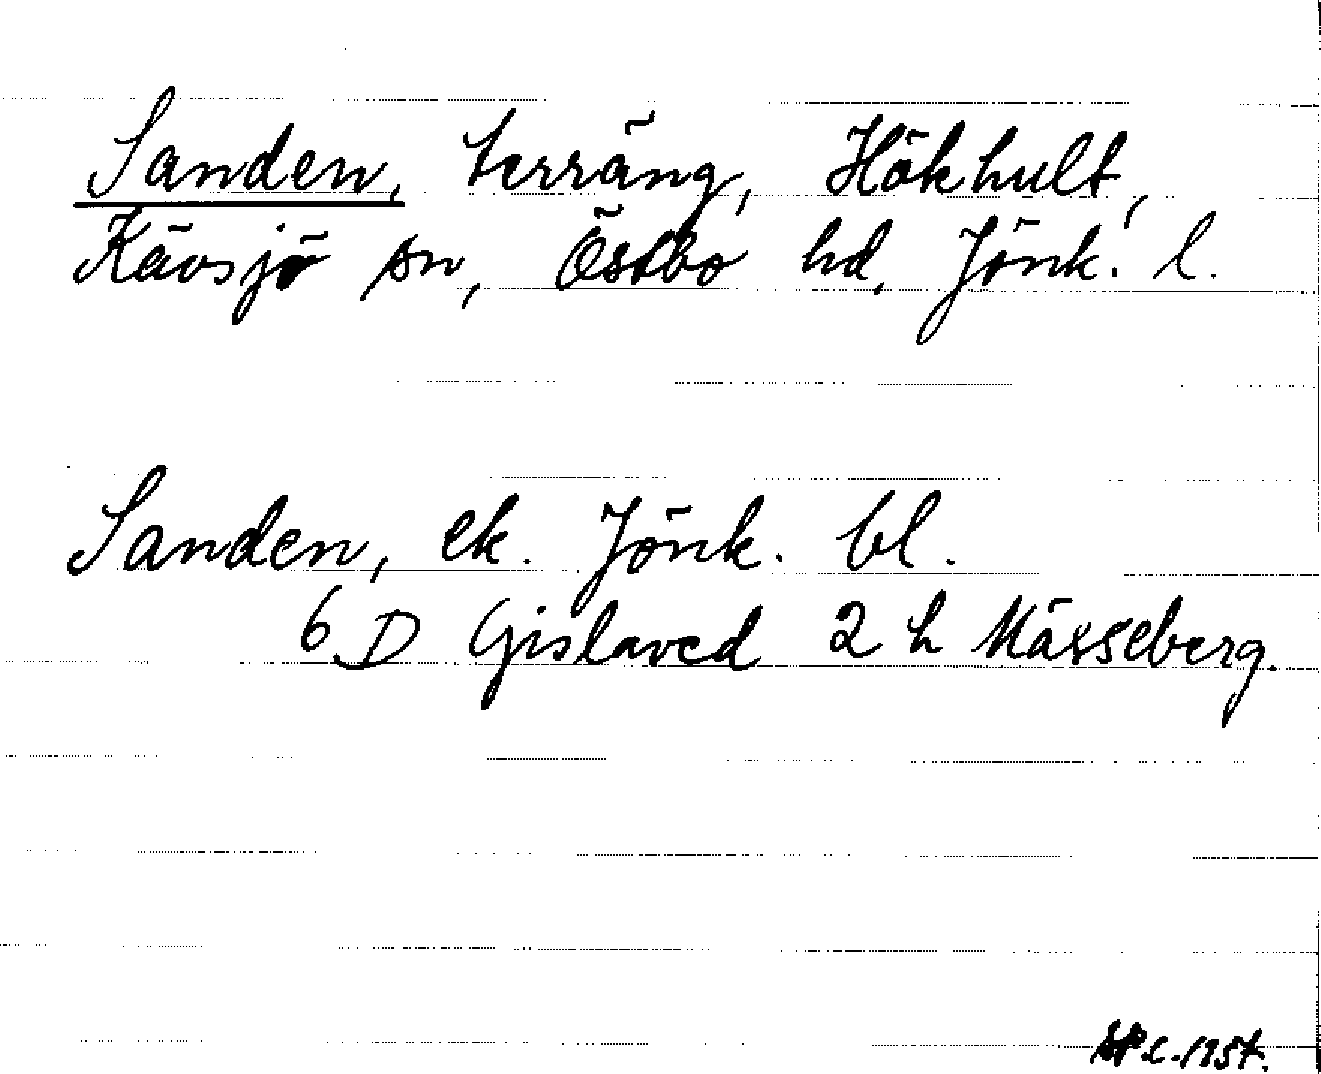 Sanden, terräng, Hökhult,
Kävsjö sn, Östbo hd, Jönk. l.
Sanden, ek. Jönk. bl.
6 D Gislaved 2 h Mässeberg.